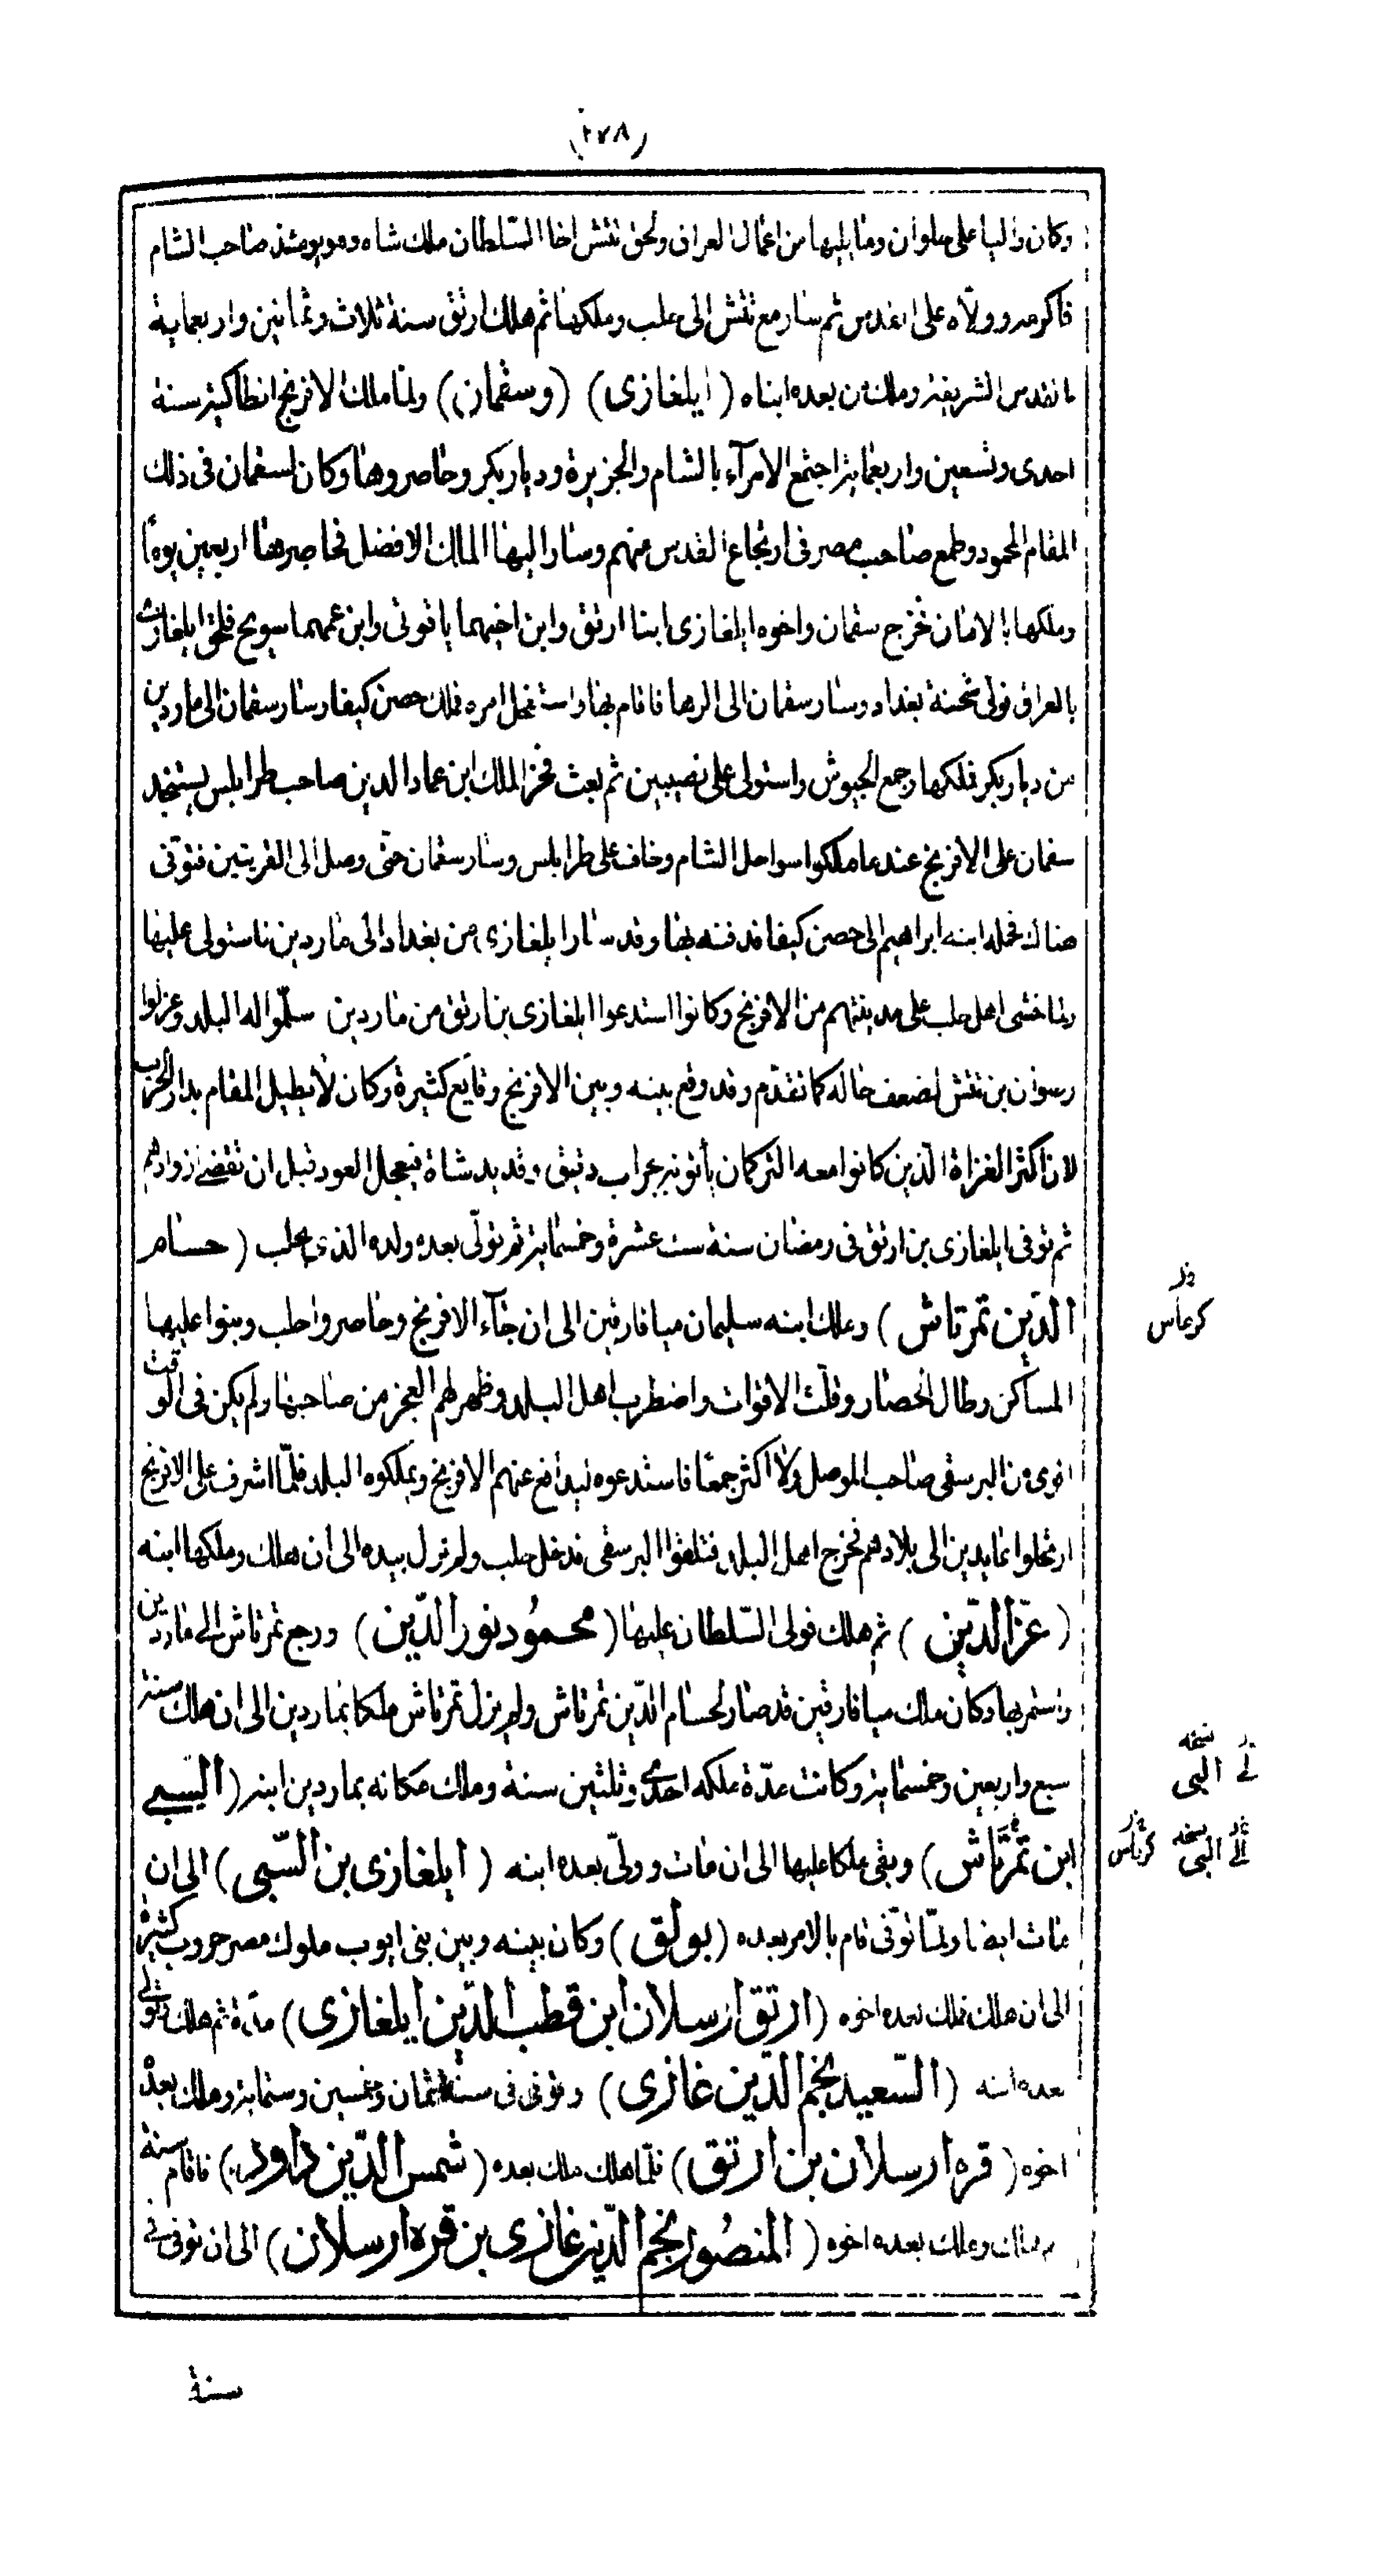 (٢٧٨)
وكان واليا على حلوان وما يليها من اعمال العراق ولحق تتش اخا السلطان ملك شاه وهو يومئذ صاحب الشام
فاكرمه وولاه على القدس ثم سار مع تتش الى حلب وملكها ثم هلك ارتق سنة ثلاث وثمانين واربعماية
بالقدس الشريف وملك من بعده ابناه (ايلغازى) (وسقمان) ولما ملك الافرنج انطاكية سنة
احدى وتسعين واربعمائة اجتمع الامرآء بالشام والجزيرة وديار بكر وحاصروها وكان لسقمان فى ذلك
المقام المحمود وطمع صاحب مصر فى ارتجاع القدس منهم وسار اليها المالك الافضل فحاصرها اربعين يوما
وملكها بالامان فخرج سقمان واخوه ايلغازى ابنا ارتق وابن اخيهما ياقوتى وابن عمهما سويح فلحق ايلغازى
بالعراق فولى شحنة بغداد وسار سقمان الى الرها فاقام بها واستفحل امره فملك حصن كيفا وسار سقمان الى ماردين
من ديار بكر فملكها وجمع الجيوش واستولى على نصيبين ثم بعث فخر الملك ابن عماد الدين صاحب طرابلس يستنجد
سقمان على الافرنج عندما ملكوا سواحل الشام وخاف على طرابلس وسار سقمان حتى وصل الى القريتين فتوفى
هناك فحمله ابنه ابراهيم الى حصن كيفا فدفنه بها وقد سار ايلغازى من بغداد الى ماردين فاستولى عليها
ولما خشى اهل حلب على مدينتهم من الافرنج وكانوا استدعوا ايلغازى بن ارتق من ماردين سلموا له البلد وعزلوا
رضوان بن تتش لضعف حاله كما تقدم وقد وقع بينه وبين الافرنج وقايع كثيرة وكان لا يطيل المقام بدار الحرب
لان اكثر الغزاة الذين كانوا معه التركمان يأتون بجراب دقيق وقديد شاة فيعجل العود قبل ان تقضى ازوادهم
ثم توفى ايلغازى بن ارتق فى رمضان سنة ست عشرة وخمسمائة ثم تولى بعده ولده الذى بحلب (حسام
الدين تمرتاش) وملك ابنه سليمان ميافارقين الى ان جآء الافرنج وحاصروا حلب وبنوا عليها
المساكن وطال الحصار وقلت الاقوات واضطرب اهل البلد وظهر لهم العجز من صاحبها ولم يكن فى الوقت
اقوى من البرسقى صاحب الموصل ولا اكثر جمعا فاستدعوه ليدافع عنهم الافرنج ويملكوه البلد فلما اشرف على الافرنج
ارتحلوا عايدين الى بلادهم فخرج اهل البلد فتلقوا البرسقى فدخل حلب ولم تزل بيده الى ان هلك وملكها ابنه
(عز الدين) ثم هلك فولى السلطان عليها (محمود نور الدين) ورجع تمرتاش الى ماردين
واستمر بها وكان ملك ميافارقين قد صار لحسام الدين تمرتاش ولم يزل تمرتاش ملكا بماردين الى ان هلك سنة
سبع واربعين وخمسمائة وكانت مدة ملكه احدى وثلثين سنة وملك مكانه بماردين ابنه (السبى
ابن تمرتاش) وبقى ملكا عليها الى ان مات وولى بعده ابنه (ايلغازى بن السبى) الى ان
مات ايضا ولما توفى قام بالامر بعده (بولق) وكان بينه وبين بنى ايوب ملوك مصر حروب كثيرة
الى ان هلك فملك بعده اخوه (ارتق ارسلان ابن قطب الدين ايلغازى) مدة ثم هلك وتولى
بعده ابنه (السعيد نجم الدين غازى) وتوفى فى سنة ثمان وخمسين وستمائة وملك بعده
اخوه (قره ارسلان بن ارتق) فلما هلك ملك بعده (شمس الدين داود) فاقام سنة
وهلك وملك بعده اخوه (المنصور نجم الدين غازى بن قره ارسلان) الى ان توفى فى
سنة
نسخه
البى
نسخه
البى